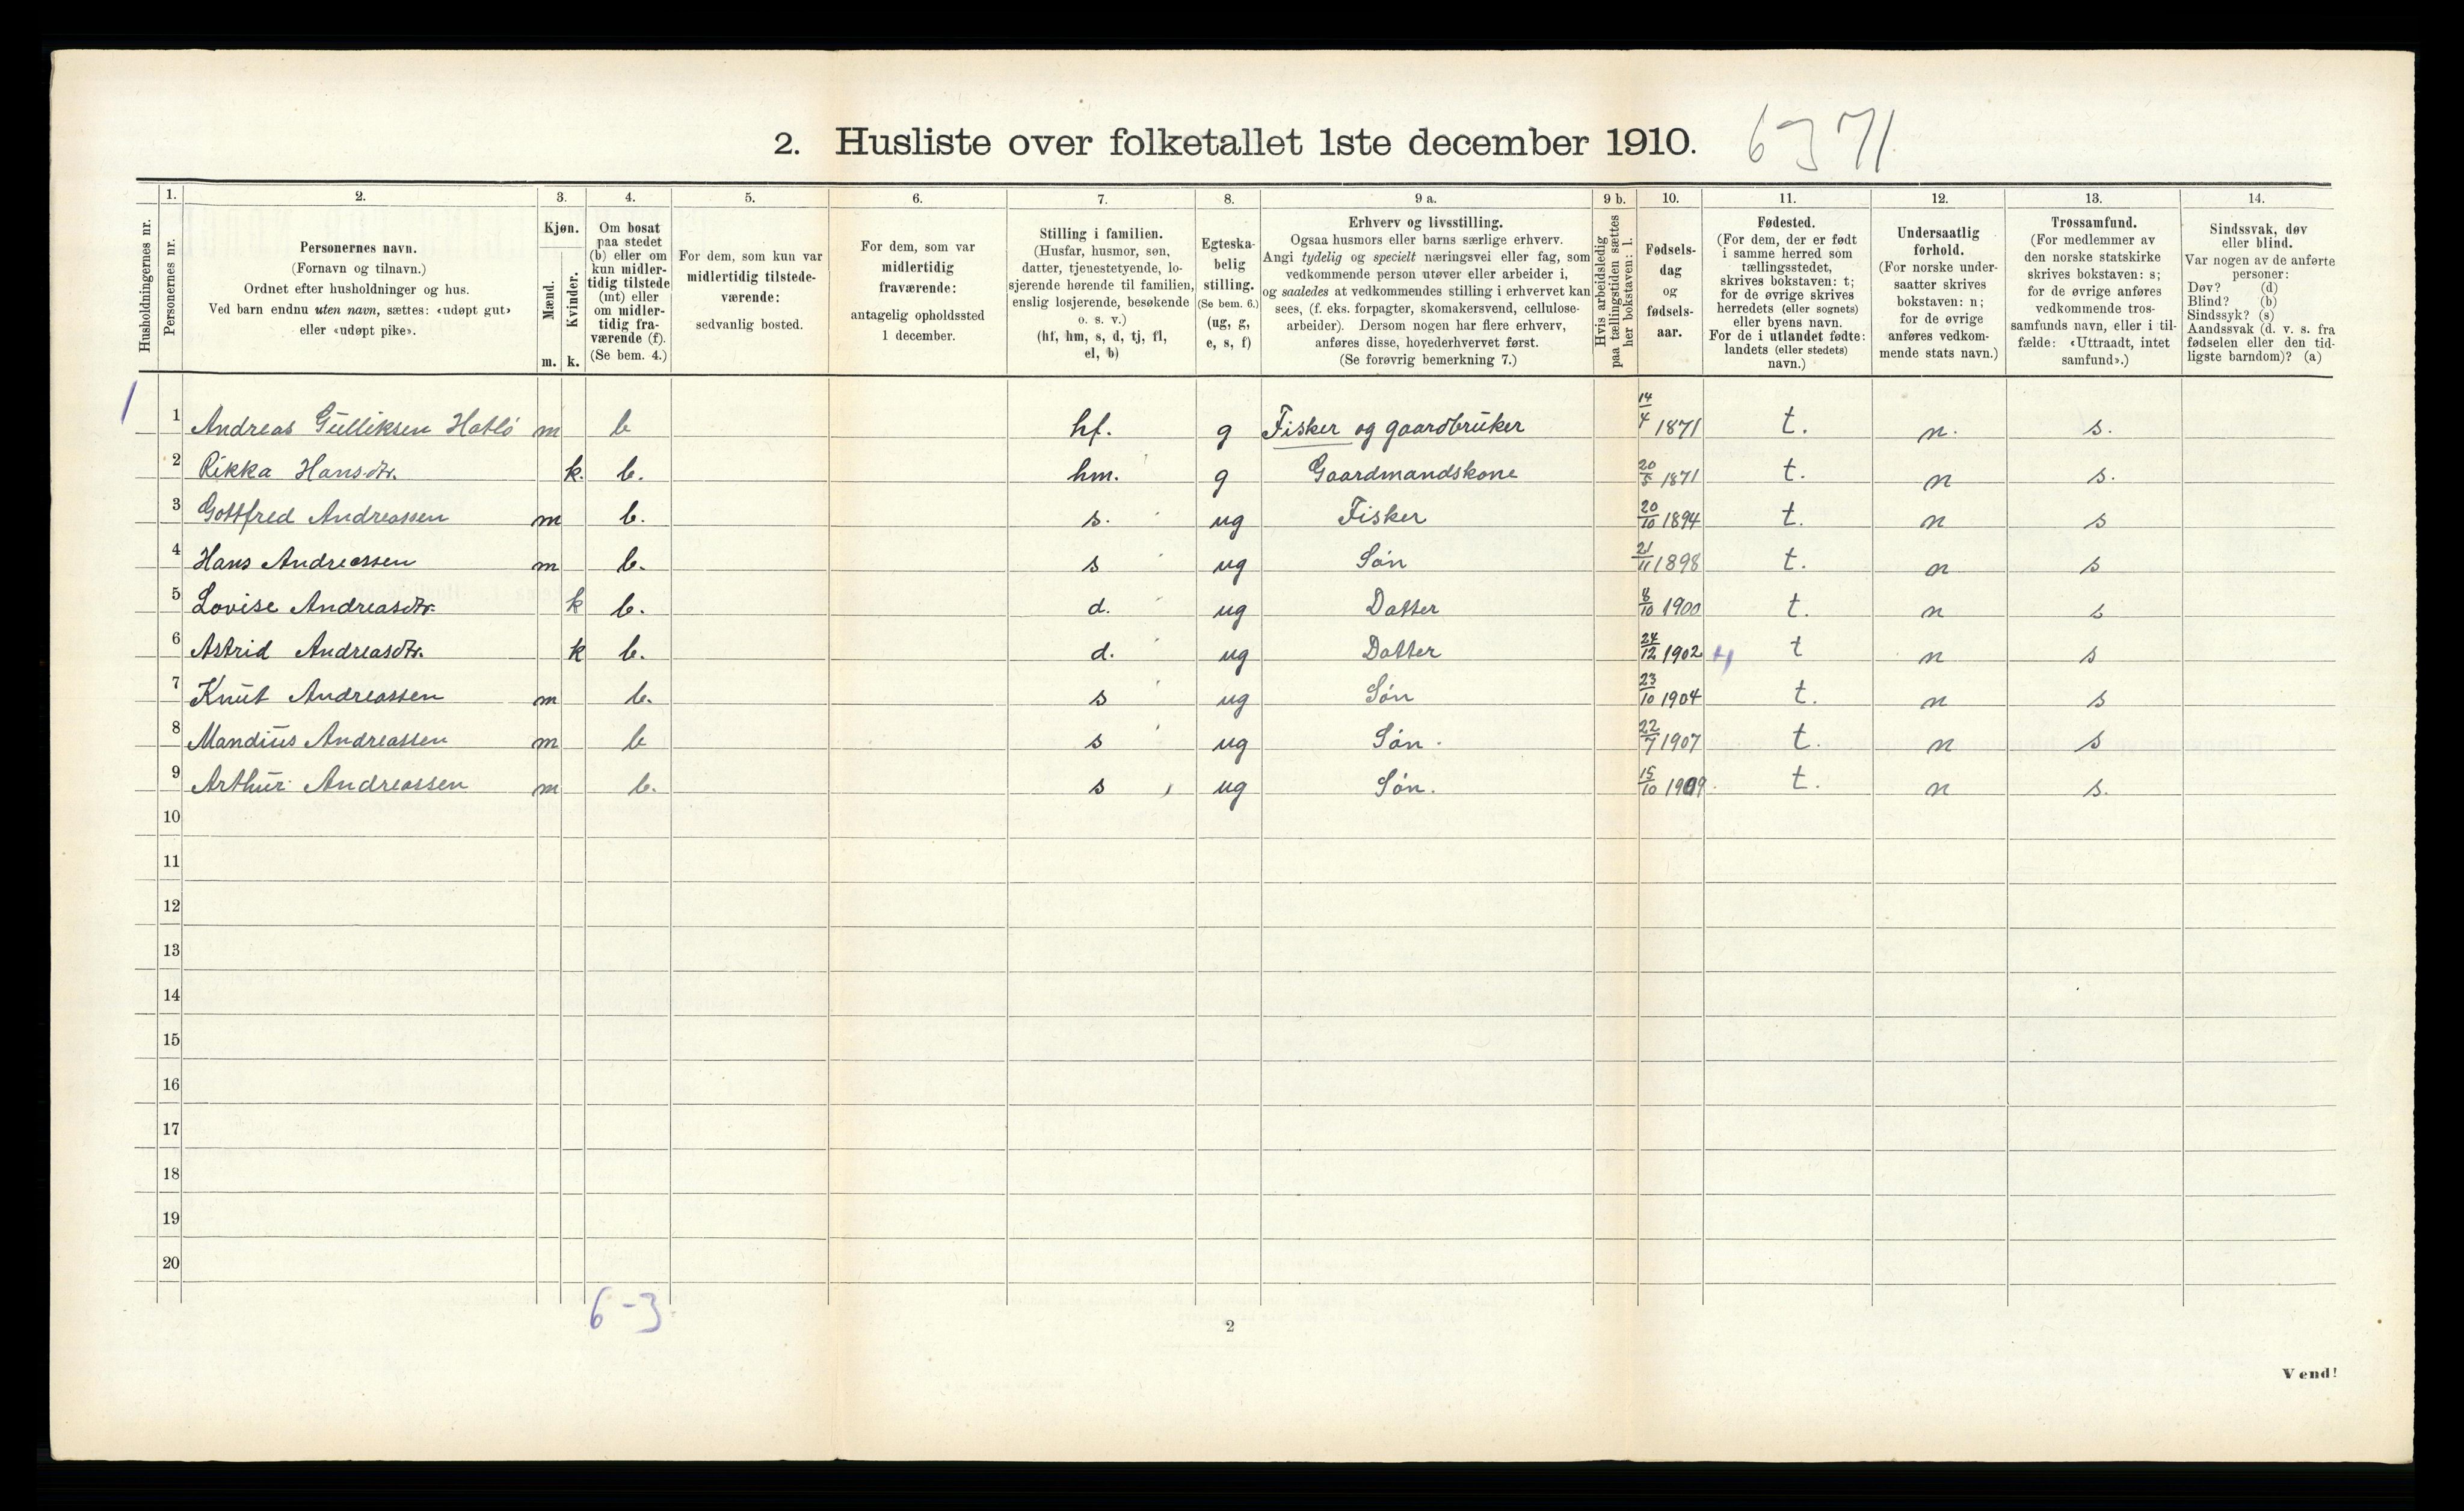 2. Husliste over folketallet 1ste december 1910.
6371
Husholdningernes nr.
1.
Personernes nr.
2.
Personernes navn.
(Fornavn og tilnavn.)
Ordnet efter husholdninger og hus.
Ved barn endnu uten navn, sættes: «udøpt gut»
eller «udøpt pike».
3.
Kjøn.
Mænd.
Kvinder.
m. k.
4.
Om bosat
paa stedet
(b) eller om
kun midler-
tidig tilstede
(mt) eller
om midler-
tidig fra-
værende (f).
(Se bem. 4.)
5.
For dem, som kun var
midlertidig tilstede-
værende:
sedvanlig bosted.
6.
For dem, som var
midlertidig
fraværende:
antagelig opholdssted
1 december.
7.
Stilling i familien.
(Husfar, husmor, søn,
datter, tjenestetyende, lo-
sjerende hørende til familien,
enslig losjerende, besøkende
o. s. v.)
(hf, hm, s, d, tj, fl,
el, b)
8.
Egteska-
belig
stilling.
(Se bem. 6.)
(ug, g,
e, s, f)
9 a.
Erhverv og livsstilling.
Ogsaa husmors eller barns særlige erhverv.
Angi tydelig og specielt næringsvei eller fag, som
vedkommende person utøver eller arbeider i,
og saaledes at vedkommendes stilling i erhvervet kan
sees, (f. eks. forpagter, skomakersvend, cellulose-
arbeider). Dersom nogen har flere erhverv,
anføres disse, hovederhvervet først.
(Se forøvrig bemerkning 7.)
9 b.
Hvis arbeidsledig
paa tællingstiden sættes
her bokstaven: l.
10.
Fødsels-
dag
og
fødsels-
aar.
11.
Fødested.
(For dem, der er født
i samme herred som
tællingsstedet,
skrives bokstaven: t;
for de øvrige skrives
herredets (eller sognets)
eller byens navn.
For de i utlandet fødte:
landets (eller stedets)
navn.)
12.
Undersaatlig
forhold.
(For norske under-
saatter skrives
bokstaven: n;
for de øvrige
anføres vedkom-
mende stats navn.)
13.
Trossamfund.
(For medlemmer av
den norske statskirke
skrives bokstaven: s;
for de øvrige anføres
vedkommende tros-
samfunds navn, eller i til-
fælde: «Uttraadt, intet
samfund».)
14.
Sindssvak, døv
eller blind.
Var nogen av de anførte
personer:
Døv? (d)
Blind? (b)
Sindssyk? (s)
Aandssvak (d. v. s. fra
fødselen eller den tid-
ligste barndom)? (a)
1 1 Andreas Gulliksen Hatlø m b hf. g Fisker og gaardbruker 14/4 1871 t. n. s.
2 Rikka Hansdtr. k. b. hm. g Gaardmandskone 20/5 1871 t. n s.
3 Gottfred Andreassen m b. s. ug Fisker 20/10 1894 t. n s
4 Hans Andreassen m b. s ug Søn 21/11 1898 t. n s
5 Lovise Andreasdtr. k b. d. ug Datter 8/10 1900 t. n s
6 Astrid Andreasdtr. k b. d. ug Datter 24/12 1902 4 t n s
7 Knut Andreassen m b. s ug Søn 23/10 1904 t. n s
8 Mandius Andreassen m b s ug Søn. 22/7 1907 t. n s
9 Arthur Andreassen m b. s ug Søn. 15/10 1909. t. n s.
10
11
12
13
14
15
16
17
18
19
20
6-3.
2
Vend!